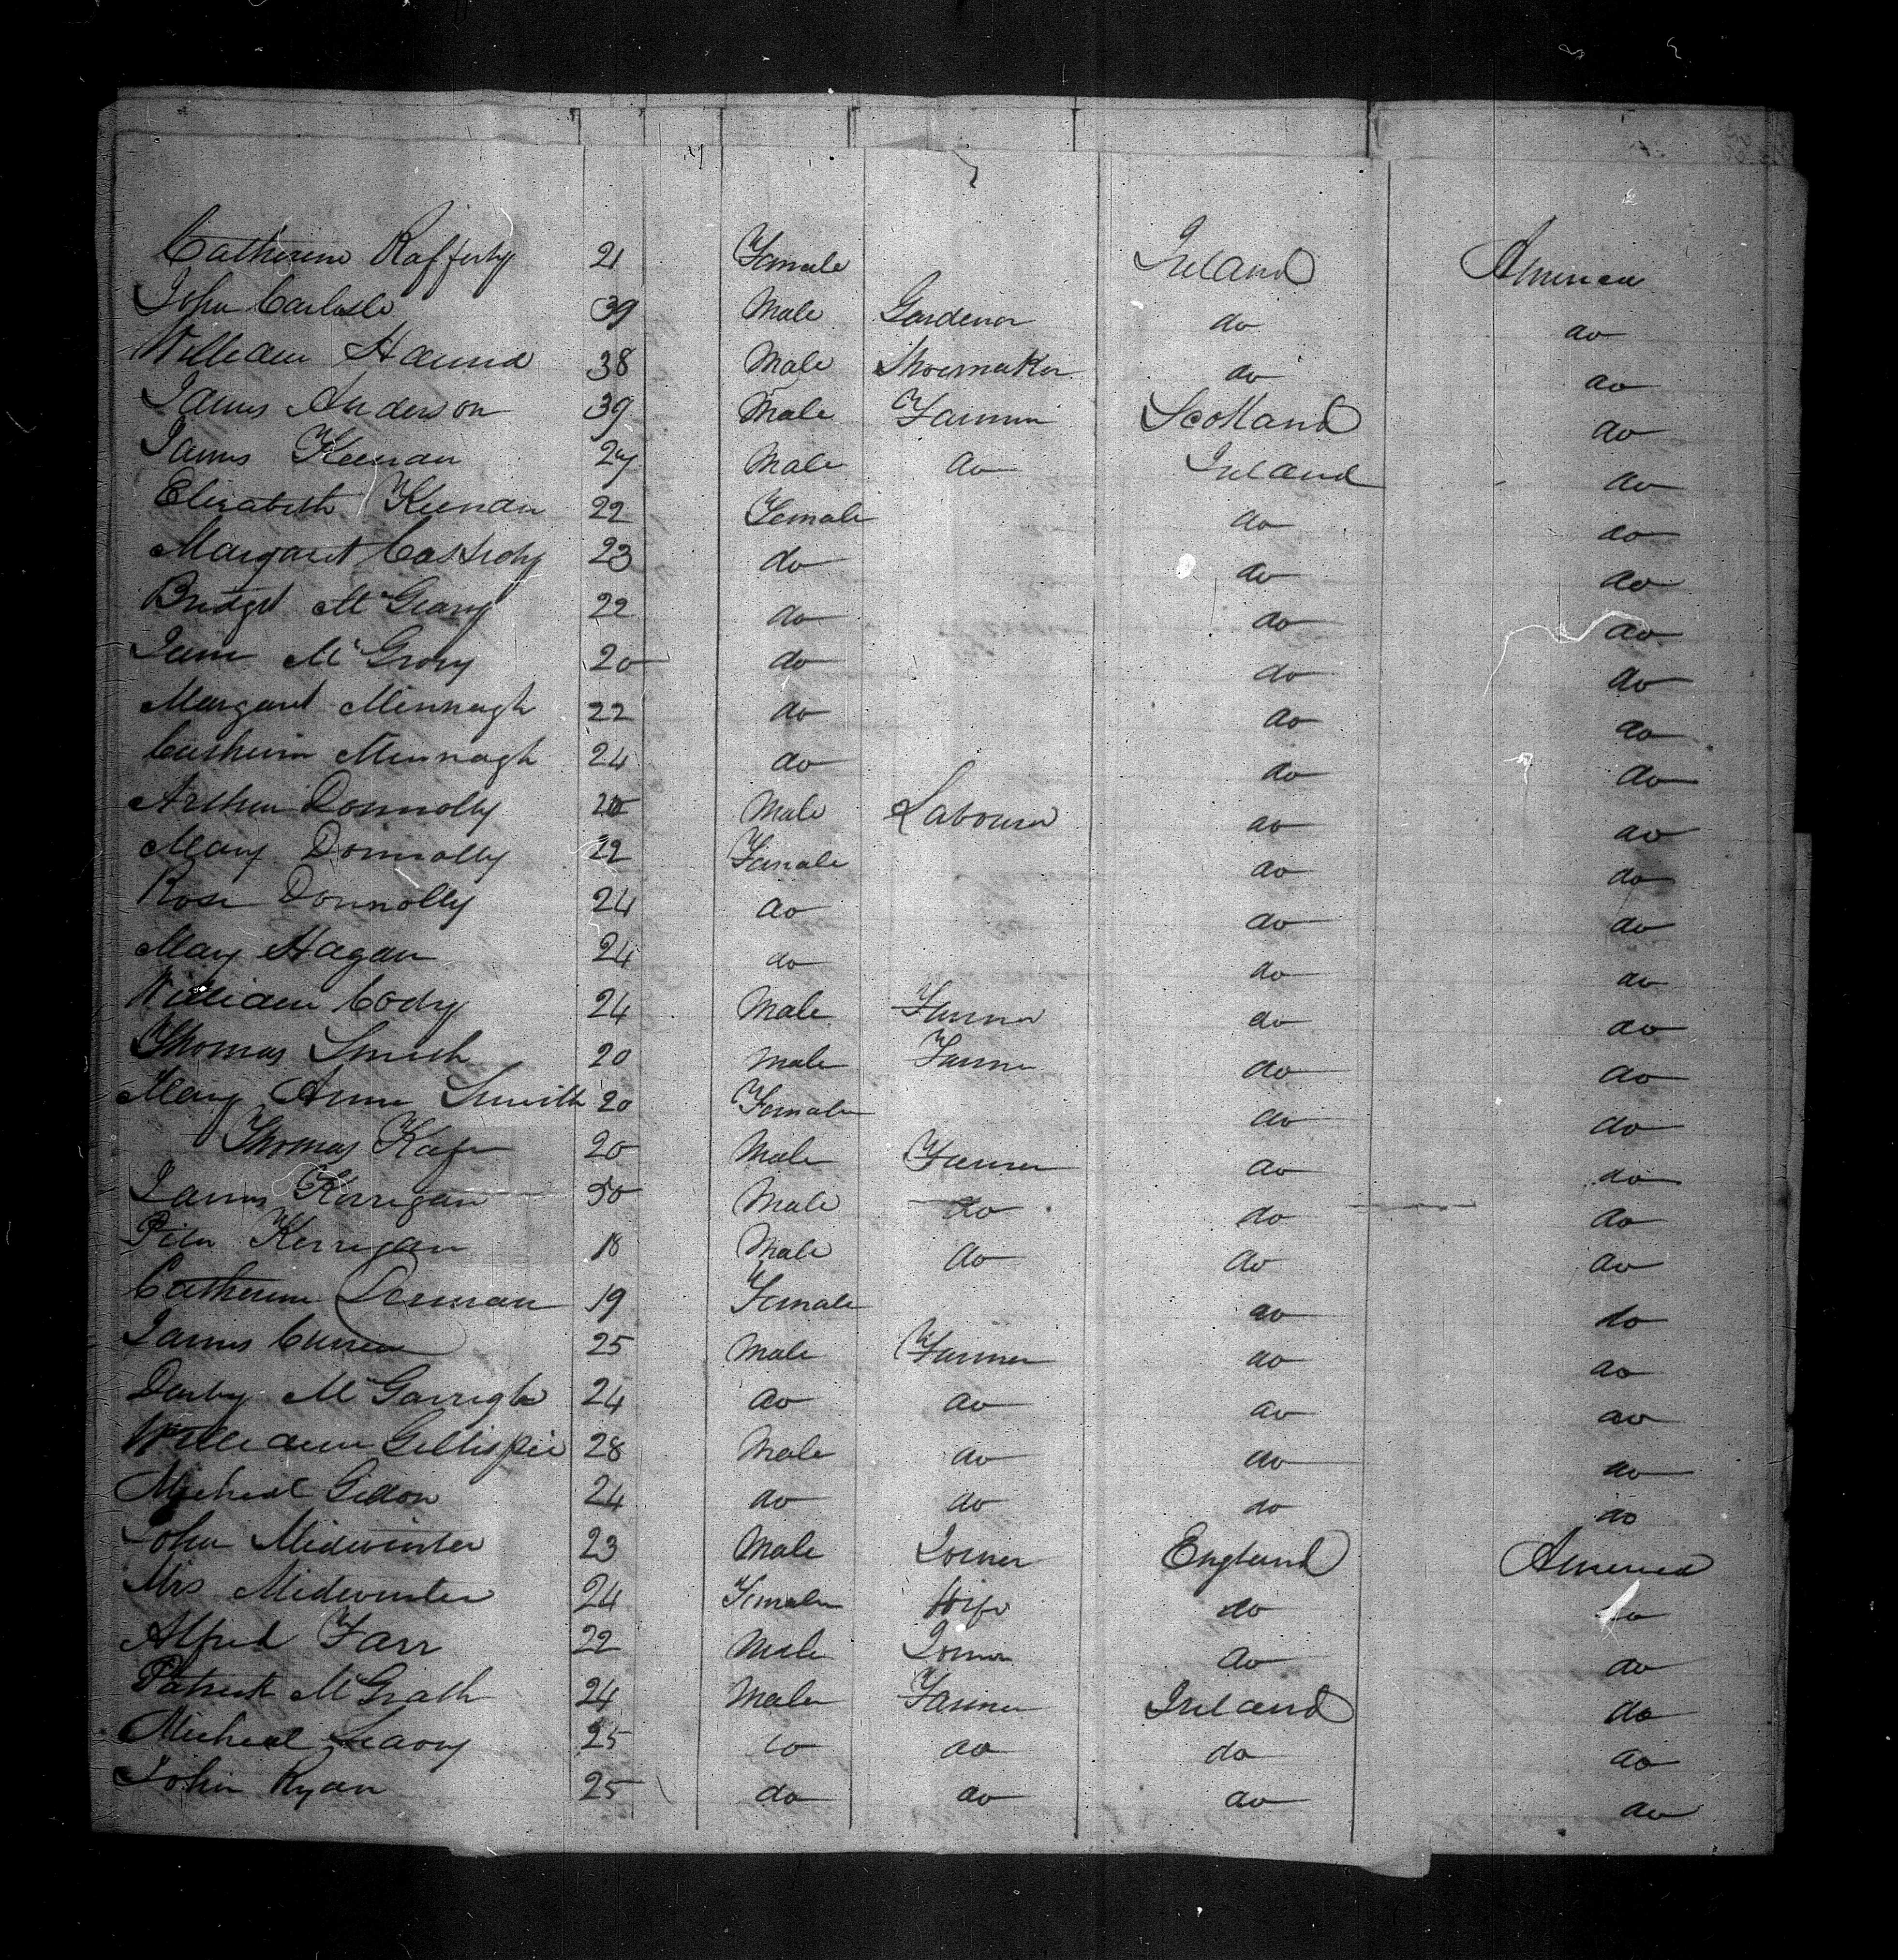 Catherine Rafferty 21 Female Ireland America
John Carlisle 39 Male Gardener do do
William Hanna 38 Male Shoemaker do do
James Anderson 39 Male Farmer Scotland do
James Keenan 27 Male do Ireland do
Elizabeth Keenan 22 Female do do
Margaret Cassidy 23 do do do
Bridget McGeary 22 do do do
Jane McGrory 20 do do do
Margaret Minnagh 22 do do do
Catherine Minnagh 24 do do do
Arthur Donnolly 20 Male Labourer do do
Mary Donnolly 22 Female do do
Rose Donnolly 24 do do do
Mary Hagan 24 do do do
William Cody 24 Male Farmer do do
Thomas Smith 20 Male Farmer do do
Mary Anne Smith 20 Female do do
Thomas 20 Male Farmer do do
James Kerrigan 50 Male do do do
Peter Kerrigan 18 Male do do do
Catherine Dorman 19 Female do do
James Curren 25 Male Farmer do do
Darby McGarrigle 24 do do do do
William Gillispie 28 Male do do do
Micheal 24 do do do do
John Midwinter 23 Male Joiner England America
Mrs Midwinter 24 Female Wife do do
Alfred Farr 22 Male Joiner do do
Patrick McGrath 24 Male Farmer Ireland do
Micheal Leavy 25 do do do do
John Ryan 25 do do do do